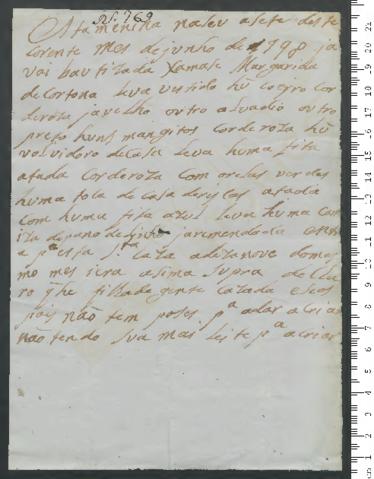 Nº 769
Esta menina naseu a sete deste
corente mes de junho de 1798 ja
vai bautizada Xamase Margarida
de Cortona leva vestido hũ coeyro cor
de roza ja velho outro asvado outro
preto huns mangitos cor de roza hũ
volvidoro de Casa leva huma fita
atada cor de roza com orelas verdes
huma tola de Casa de rislas atada
com huma fita azul leva huma cam
iza de pano de linho ja remendada
a pª esta Stª Caza a dezanove do mes
mo mes i era asima supra decla
ro q he filha de gente cazada e seos
pais não tem poses pª a dar a criar
não tendo sua mai leite pª a criar